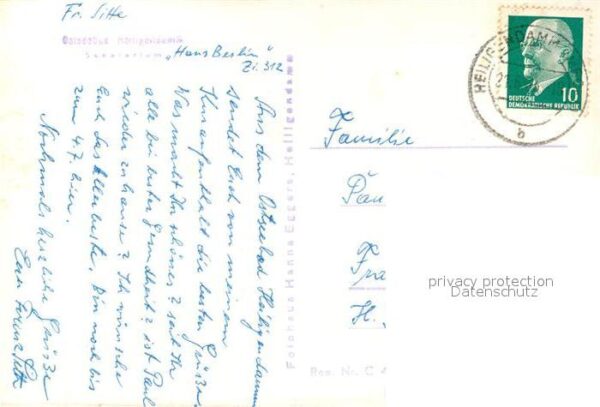 Fr. Sitte
Ostseebad Heiligendamm
Sanatorium „Haus Berlin"
Zi. 312
Aus dem Ostseebad Heiligendamm
sendet Euch von meinem
Kuraufenthalt die besten Grüße.
Was macht Ihr schönes? seit Ihr
alle bei bester Gesundheit? ist Paul
wieder zuhause? Ich wünsche
Euch das Allerbeste. Bin noch bis
zum 4.7. hier.
Nochmals herzliche Grüße
Euer Franz Sitte
Fotohaus Hanna Eggers, Heiligendamm
HEILIGENDAMM
b
10
DEUTSCHE
DEMOKRATISCHE REPUBLIK
Familie
Pau
Fra
H.
privacy protection
Datenschutz
Reg. Nr. C 4